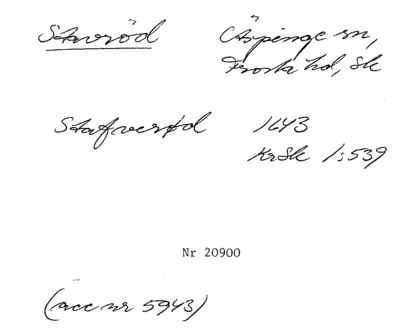 Stavröd Äspinge sn,
Frosta hd, Sk
Stafverød 1643
KrSk 1:539
Nr 20900
(acc nr 5943)